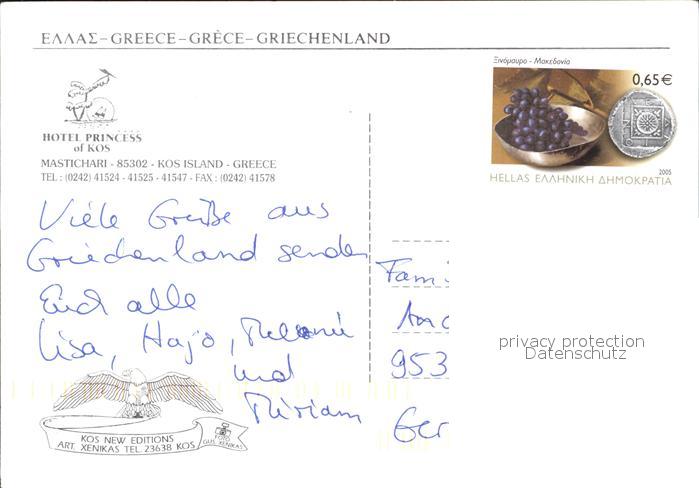 ΕΛΛΑΣ – GREECE – GRÈCE – GRIECHENLAND
Ξινόμαυρο - Μακεδονία
0,65€
2005
HELLAS ΕΛΛΗΝΙΚΗ ΔΗΜΟΚΡΑΤΙΑ
HOTEL PRINCESS
of KOS
MASTICHARI - 85302 - KOS ISLAND - GREECE
TEL : (0242) 41524 - 41525 - 41547 - FAX : (0242) 41578
Viele Grüße aus
Griechenland senden
Euch alle
Lisa, Hajo, Melanie
und
Miriam
Fami
953
Ger
privacy protection
Datenschutz
KOS NEW EDITIONS
ART. XENIKAS TEL. 23638 KOS
FOTO
GUS. XENIKAS